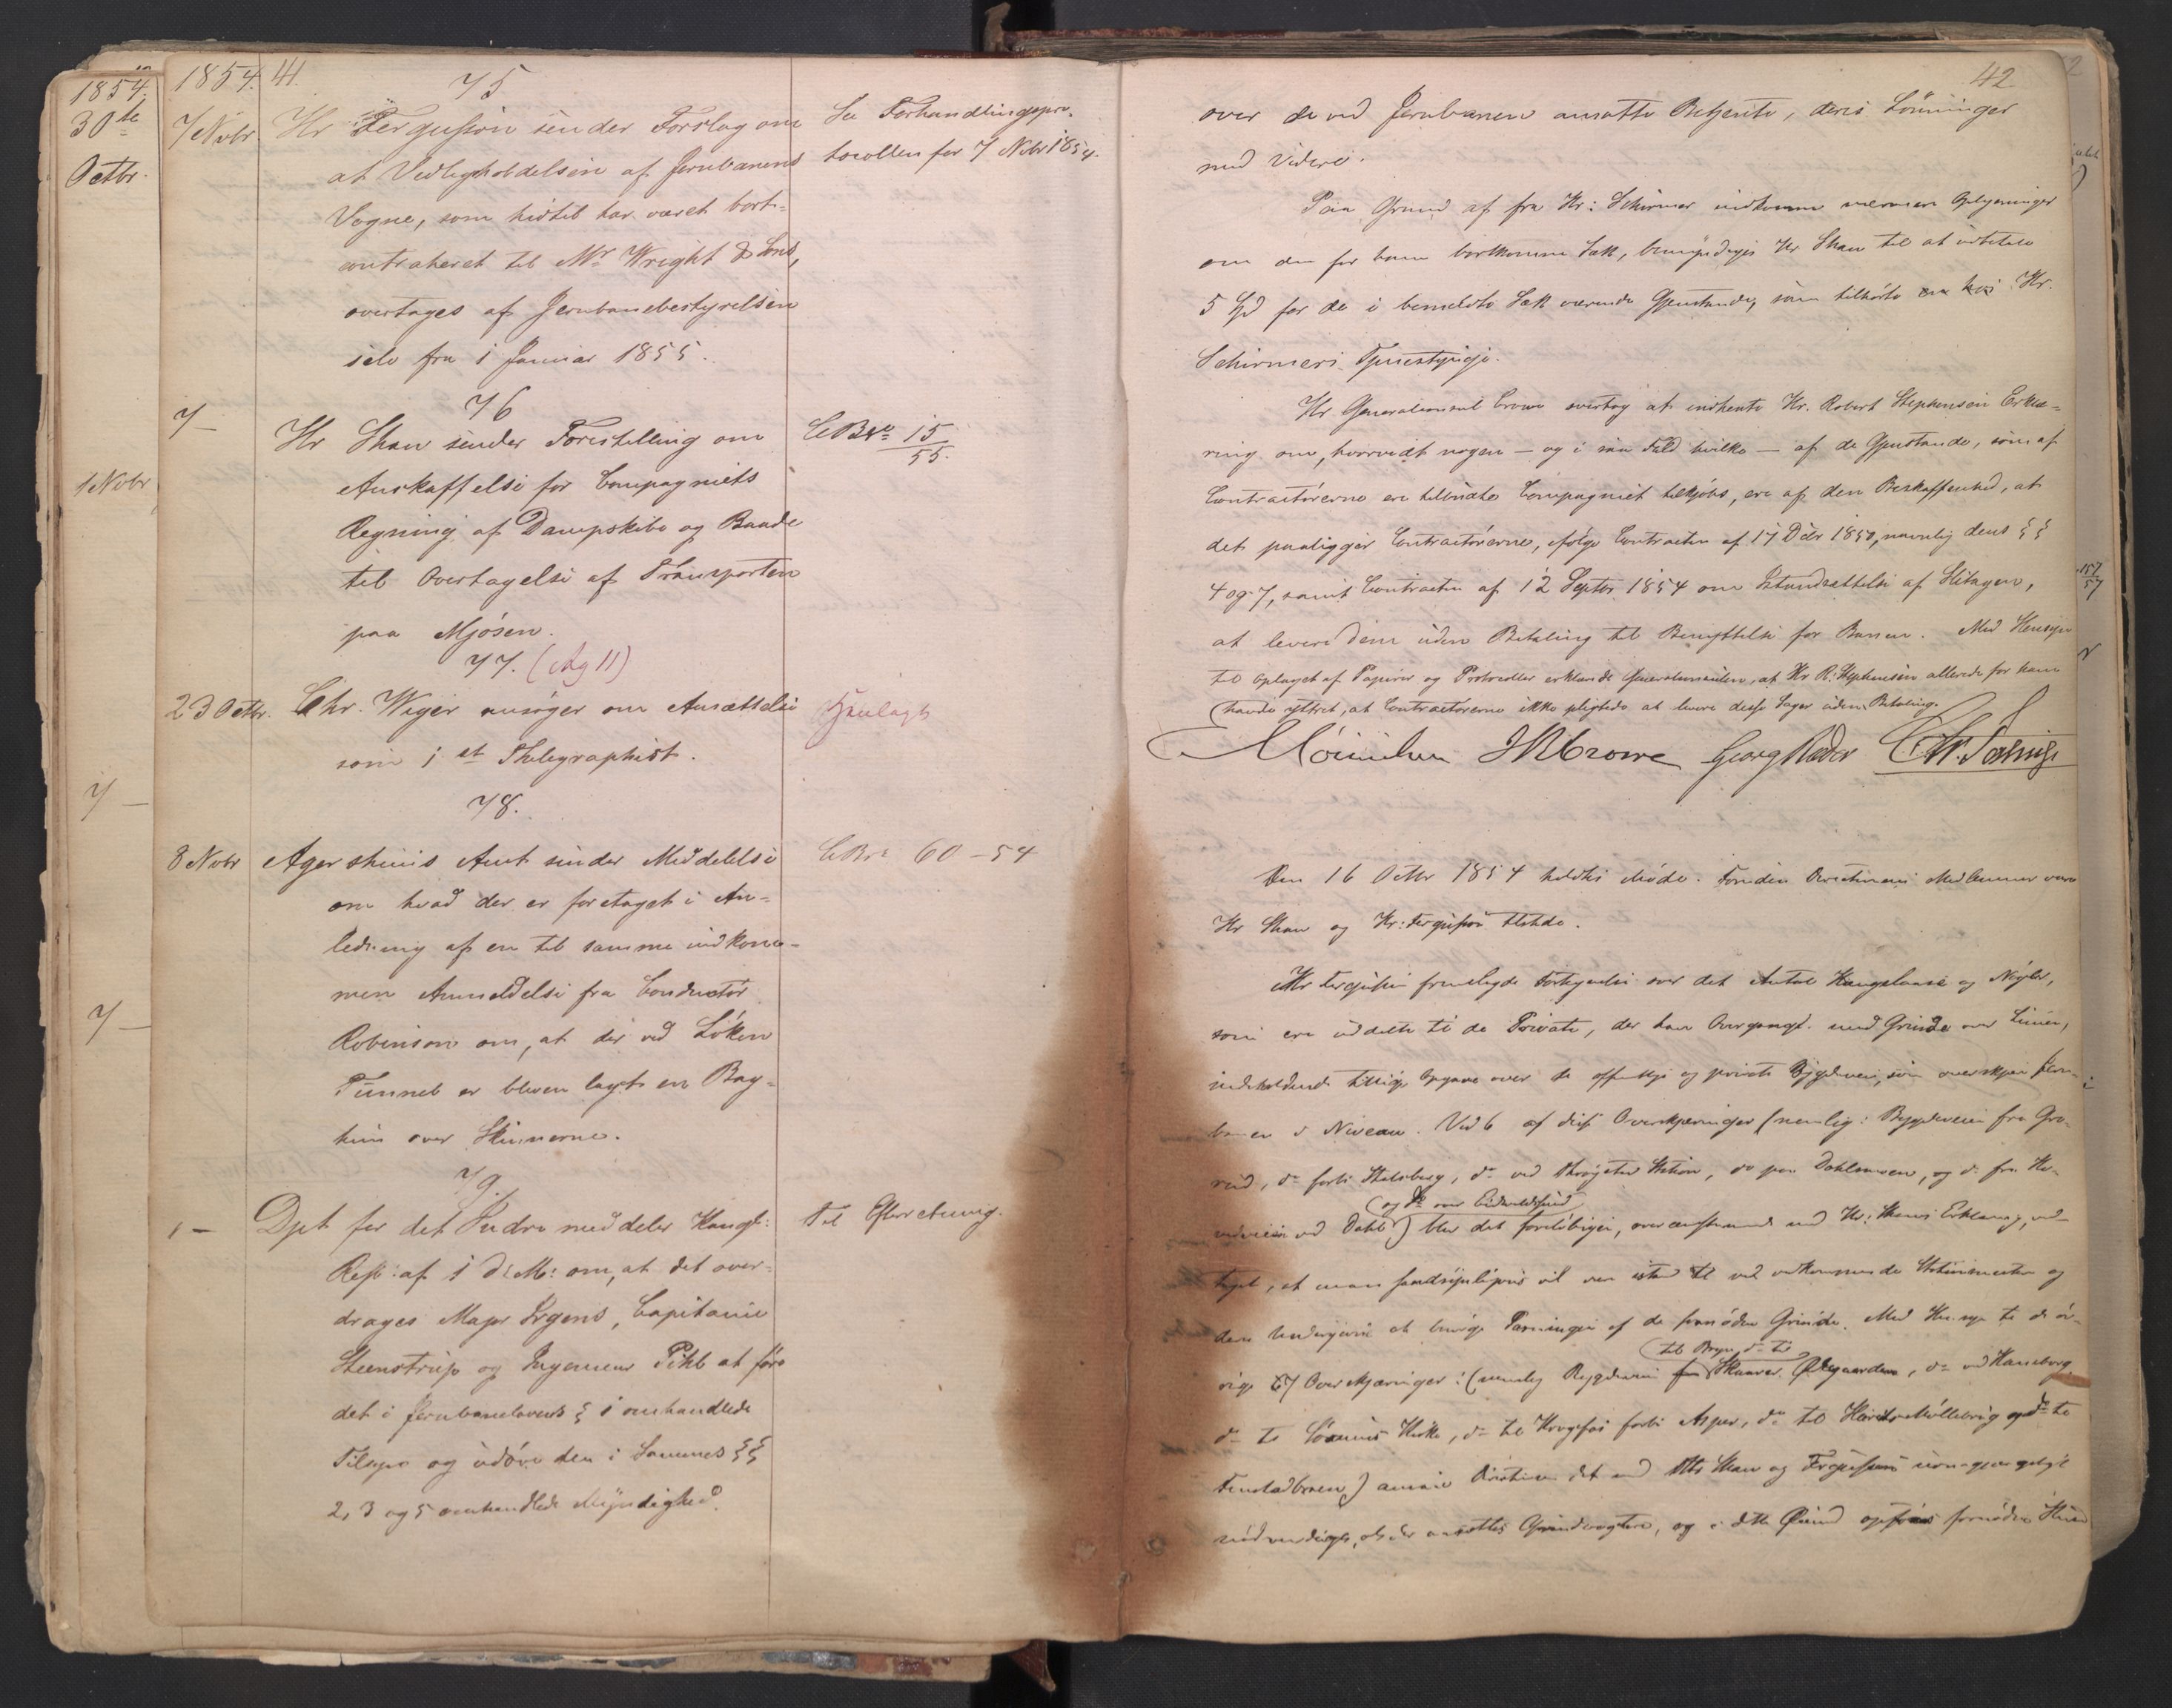 1854.
30te
Octbr.
1 Nobr
7 —
7 —
1854. 41.
75
7 Nobr. Hr Fergusson sender Forslag om
at Vedligeholdelsen af Jernbanens
Vogne, som hidtil har været bort-
contraheret til Mr Wright & Sons,
overtages af Jernbanebestyrelsen
selv fra 1 Januar 1855.
Se Forhandlingspro-
tocollen for 7 Nobr 1854.
76
7 — Hr Shaw sender Forestilling om
Anskaffelse for Compagniets
Regning af Dampskibe og Baade
til Overtagelse af Transporten
paa Mjösen.
CBrv 15
55.
77. (Ag 11)
23 Octbr. Chr. Wiger ansöger om Ansættelse
som 1 st Thelegraphist.
Henlagt
78.
8 Nobr Agershuus Amt sender Meddelelse
om hvad der er foretaget i An-
ledning af en til samme indkom-
men Anmeldelse fra Conductör
Robinson om, at der ved Löken
Tunnel er bleven lagt en Bag-
hun over Skinnerne.
CBrv 60 – 54
79.
1 — Dpt for det Indre meddeler Kongl:
Resl: af 1 d: M: om, at det over-
drages Major Irgens, Capitaine
Steenstrup og Ingenieur Pihl at före
det i Jernbanelovens § 1 omhandlede
Tilsyn og udöve den i Sammes §§
2, 3 og 5 omhandlede Myndighed.
til Efterretning.
42
over de ved Jernbanen ansatte Betjente, deres Lönninger
med Videre.
Paa Grund af fra Hr: Schirmer indkomne nærmere Oplysninger
om den for ham bortkomne Sæk, bemyndiges Hr Shaw til at udbetale
5 Spd for de i bemeldte Sæk værende Gjenstande, som tilhörte Hr.
Schirmers Tjenestepige.
Hr Generalconsul Crowe overtog at indhente Hr. Robert Stephensen Erklæ-
ring om, hvorvidt nogen — og i saa Fald hvilke — af de Gjenstande, som af
Contractörerne ere tilbudte Compagniet tilkjöbs, ere af den Beskaffenhed, at
det paaligger Contractörerne, ifölge Contracten af 17 Dcbr 1850, navnlig dens §§
4 og 7, samt Contracten af 12 Septbr 1854 om Istandsættelse af Slitagen,
at levere dem uden Betaling til Benyttelse for Banen. Med Hensyn
til Oplaget af Papirer og Protocoller erklærede Generalconsulen, at Hr R: Stephensen allerede for ham
havde yttret, at Contractörerne ikke pligtede at levere disse Sager uden Betaling.
JRCrowe Georg Ræder
Den 16 Octbr 1854 holdtes Möde. Foruden Directionens Medlemmer vare
Hr Shaw og Hr: Fergusson tilstede.
Mr Fergusson fremlagde Fortegnelse over det Antal Hængelaase og Nögler,
som ere uddelte til de Private, der have Overgange med Grinde over Linien,
indeholdende tillige Opgave over de offentlige og private Bygdeveie, som overskjære Jern-
banen i Niveau. Ved 6 af disse Overskjæringer (nemlig: Bygdeveien fra Gro-
rud, do forbi Stalsberg, do ved Trögstad Station, do paa Dahlsmoen, og do fra Ho-
vedveien ved Dahl (og do over Eidsvoldsund) blev det foreløbigen, overensstemmende med Hr: Shaws Erklæring, ved-
taget, at man sandsynligvis vil være istand til ved vedkommende Stationsmester og
dere Undergivne at besörge Pasningen af de fornödne Grinde. Med Hensyn til de öv-
rige 7 Overskjæringer: (nemlig Bygdeveien til Bryn, do til Skaarer Ødegaarden, do ved Haneborg
do til Sörums Kirke, do til Krogfos forbi Asper, do til og do til
) ansaae Directionen det med Mrs Shaw og Fergusson uomgjængeligt
nödvendigt, at der ansættes Grindevogtere, og i dette Øiemed opföres fornödne Huse
157
57